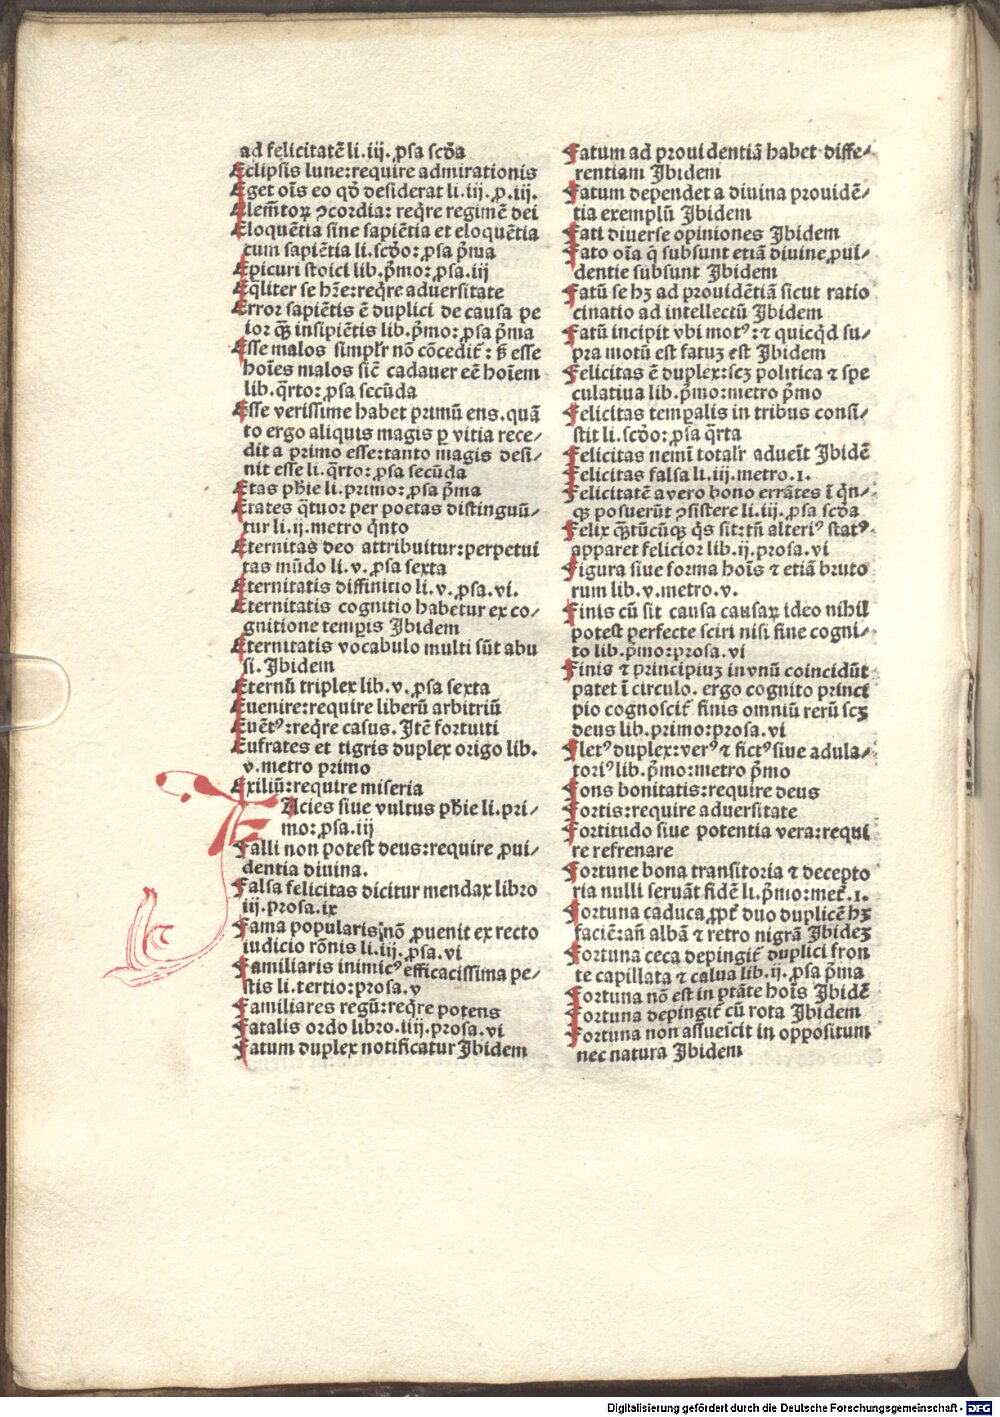 ad felicitatē li.iii.ꝓsa scḋa
Eclipsis lune:require admirationis
Eget oīs eo qḋ desiderat li.iii.ꝓ.iii.
Elem̄toꝝ ꝯcordia: reqͥre regimē dei
Eloquētia sine sapiētia et eloquētia
cum sapiētia li.scḋo:ꝓsa p̄ma
Epicuri stoici lib.p̄mo:ꝓsa.iij
Eqͣliter se hr̄e:reqͥre aduersitate
Error sapiētis ē duplici de causa pe
ior qꝫ̄ insipiētis lib.p̄mo:ꝓsa p̄ma
Esse malos simplr̄ nō cōcedit̄: sꝫ esse
hoīes malos sic̄ cadauer eē hoīem
lib.qͣrto:ꝓsa secūda
Esse verissime habet primū ens.quā
to ergo aliquis magis ꝑ vitia rece⸗
dit a primo esse:tanto magis desi⸗
nit esse li.qͣrto:ꝓsa secūda
Etas ph̄ie li.primo:ꝓsa p̄ma
Etates qͣtuor per poetas distinguū⸗
tur li.ii.metro qͥnto
Eternitas deo attribuitur:perpetui
tas mūdo li.v.ꝓsa sexta
Eternitatis diffinitio li.v.ꝓsa.vi.
Eternitatis cognitio habetur ex co⸗
gnitione temꝑis Ibidem
Eternitatis vocabulo multi sūt abu
si.Ibidem
Eternū triplex lib.v.ꝓsa sexta
Euenire:require liberū arbitriū
Euētꝰ:reqͥre casus.Itē fortuiti
Eufrates et tigris duplex origo lib.
v.metro primo
Exiliū:require miseria
FAcies siue vultus ph̄ie li.pri⸗
mo:ꝓsa.iii
Falli non potest deus:require ꝓui⸗
dentia diuina.
Falsa felicitas dicitur mendax libro
iij.prosa.ix
Fama popularis:nō ꝓuenit ex recto
iudicio rōnis li.iij.ꝓsa.vi
Familiaris inimicꝰ efficacissima pe⸗
stis li.tertio:prosa.v
Familiares regū:reqͥre potens
Fatalis ordo libro.iiij.prosa.vi
Fatum duplex notificatur Ibidem
Fatum ad prouidentiā habet diffe⸗
rentiam Ibidem
Fatum dependet a diuina prouidē⸗
tia exemplū Ibidem
Fati diuerse opiniones Ibidem
Fato oīa q̄ subsunt etiā diuine ꝓui⸗
dentie subsunt Ibidem
Fatū se hꝫ ad prouidētiā sicut ratio
cinatio ad intellectū Ibidem
Fatū incipit vbi motꝰ: ⁊ quicqͥd su⸗
pra motū est fatuꝫ est Ibidem
Felicitas ē duplex:scꝫ politica ⁊ spe
culatiua lib.p̄mo:metro p̄mo
Felicitas temꝑalis in tribus consi⸗
stit li.scḋo:ꝓsa qͣrta
Felicitas nemī totalr̄ aduēit Ibidē
Felicitas falsa li.iii.metro.1.
Felicitatē a vero bono errātes ī qͥn⸗
qꝫ posuerūt ꝯsistere li.iii.ꝓsa scḋa
Felix qꝫ̄tūcūqꝫ qͥs sit:tn̄ alteriꝰ statꝰ
apparet felicior lib.ij.prosa.vi
Figura siue forma hoīs ⁊ etiā bruto
rum lib.v.metro.v.
Finis cū sit causa causaꝝ ideo nihil
potest perfecte sciri nisi fine cogni⸗
to lib.p̄mo:prosa.vi
Finis ⁊ principiuꝫ in vnū coincidūt
patet ī circulo. ergo cognito princi
pio cognoscit̄ finis omniū rerū scꝫ
deus lib.primo:prosa.vi
Fletꝰ duplex:verꝰ ⁊ fictꝰ siue adula⸗
toriꝰ lib.p̄mo:metro p̄mo
Fons bonitatis:require deus
Fortis:require aduersitate
Fortitudo siue potentia vera:requi
re refrenare
Fortune bona transitoria ⁊ decepto
ria nulli seruāt fidē li.p̄mo:met̄.1.
Fortuna caduca ꝓpt̄ duo duplicē hꝫ
faciē:an̄ albā ⁊ retro nigrā Ibideꝫ
Fortuna ceca depingit̄ duplici fron
te capillata ⁊ calua lib.ij.ꝓsa p̄ma
Fortuna nō est in ptāte hoīs Ibidē
Fortuna depingit̄ cū rota Ibidem
Fortuna non assuescit in oppositum
nec natura Ibidem
Digitalisierung gefördert durch die Deutsche Forschungsgemeinschaft - DFG